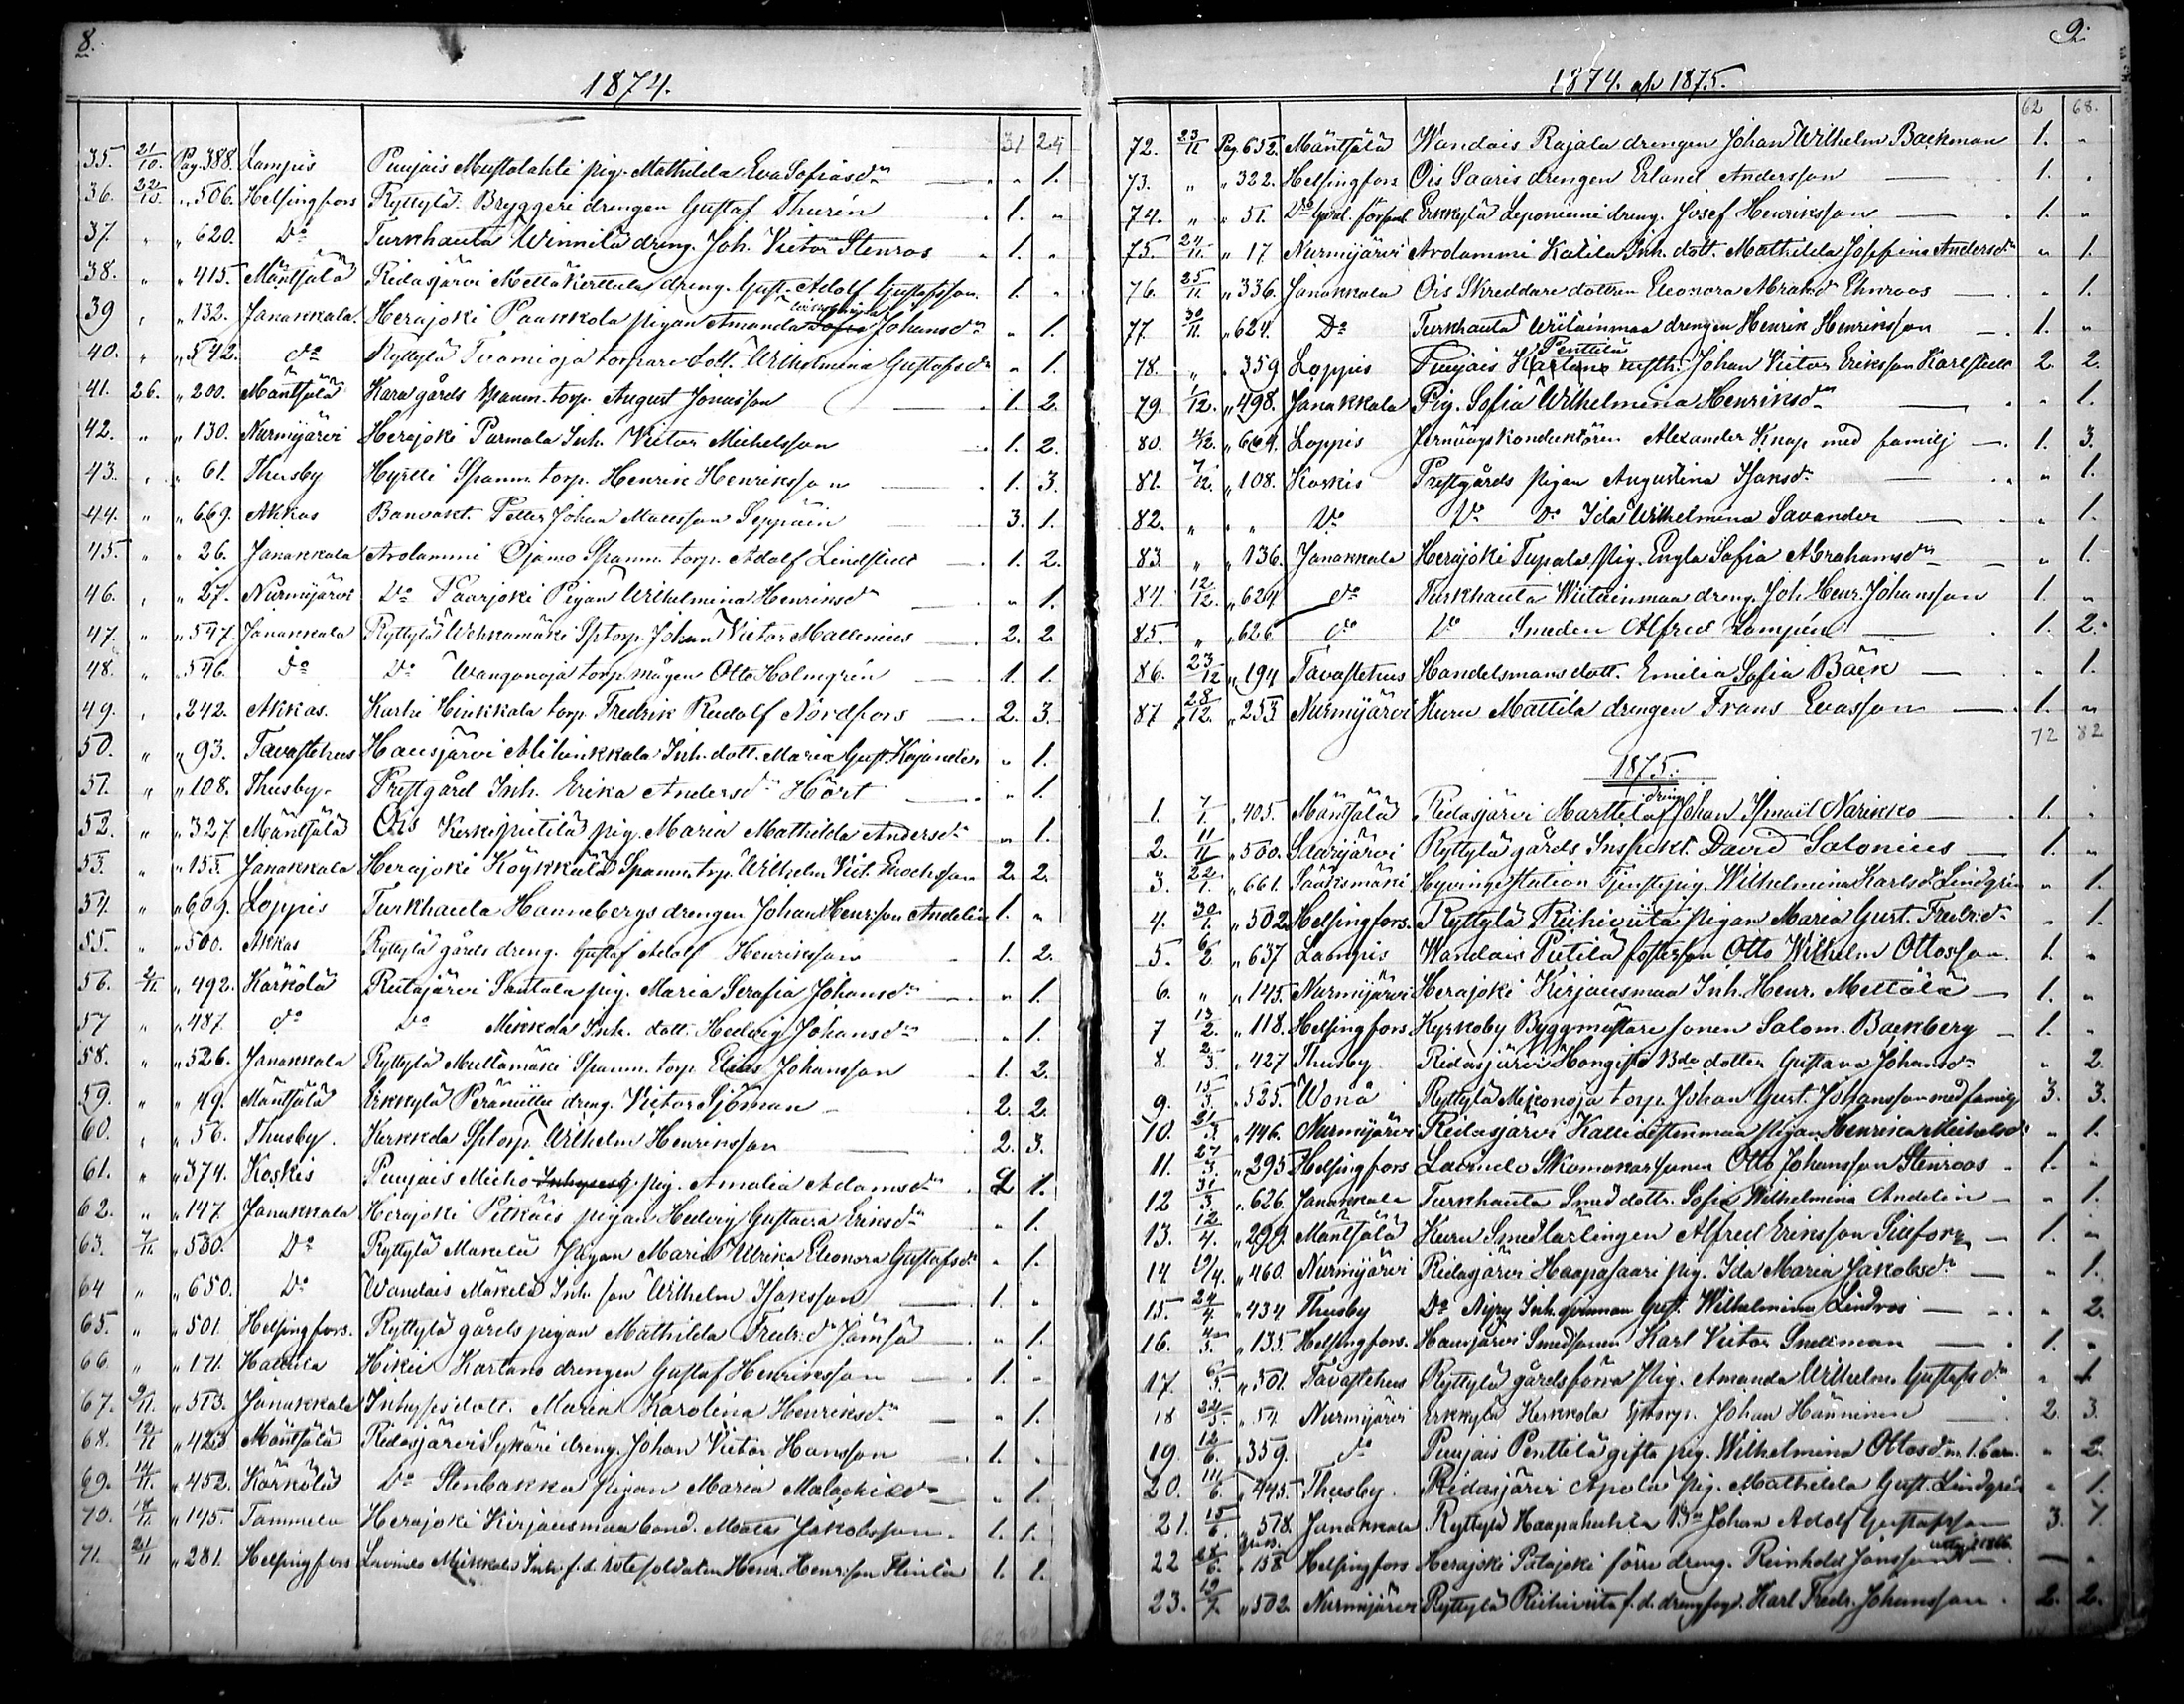 8.
1874.
31 24
35. 21/10. Pag. 388. Lampis Puujais Mustalahti pig. Mathilda Eva Sofiasdr " 1.
36. 22/10. " 506. Helsingfors Ryttylä Bryggeri drengen Gustaf Thurén 1. "
37. " " 620. Do Turkhauta Winnilä dreng. Joh. Victor Stenroos 1. "
38. " " 415. Mäntsälä Ridasjärvi Mettäkerttula dreng. Gust. Adolf Gustafsson 1. "
39 " " 132. Janakkala. Herajoki Paakkola pigan Amanda Johansdr " 1.
40. " " 542. do Ryttylä Tuomioja torpare dott. Wilhelmina Gustafsdr " 1.
41. 26. " 200. Mäntsälä Kara gårds Spanm. torp. August Jonasson 1. 2.
42. " " 130. Nurmijärvi Herajoki Parmala Inh. Victor Michelsson 1. 2.
43. " " 61. Thusby Hyrlli Spanm. torp. Henrik Henriksson 1. 3.
44. " " 669. Akkas Banvakt. Petter Johan Mattsson Seppäin 3. 1.
45. " " 26. Janakkala Arolammi Ojamo Spanm. torp. Adolf Lindstedt 1. 2.
46. " " 27. Nurmijärvi Do Paarjoki Pigan Wilhelmina Henriksdr " 1.
47. " " 547. Janakkala Ryttylä Wehkamäki Sptorp. Johan Victor Mallenius 2. 2
48. " " 546. do Do Wanganoja torp. mågen Otto Holmgrén 1. 1.
49. " " 242. Akkas. Karhi Hinkkala torp. Fredrik Rudolf Nordfors 2. 3.
50. " " 93. Tavastehus Hausjärvi Alitinkkala Inh. dott. Maria Gust. Kajander " 1.
51. " " 108. Thusby. Prestgård Inh. Erika Andersdr Hört " 1.
52. " " 327. Mäntsälä Ois Keskipietilä pig. Maria Mathilda Andersdr " 1.
53. " " 155. Janakkala Herajoki Köykkälä Spanm. torp. Wilhelm Vict. Enochsson 2. 2.
54. " " 609. Loppis Turkhauta Hannebergs drengen Johan Henrsson Andelin 1. "
55. " " 500. Akkas Ryttylä gårds dreng. Gustaf Adolf Henriksson 1. 2.
56. 2/11. " 492. Kärkölä Ridasjärvi Santala pig. Maria Serafia Johansdr " 1.
57 " " 487. do Do Mikkola Inh. dott. Hedvig Johansdr " 1.
58. " " 526. Janakkala Ryttylä Multamäki Spanm. torp. Elias Johansson 1. 2.
59. " " 49. Mäntsälä Erkkylä dreng. Victor Sjöman 2. 2.
60. " " 56. Thusby. Kerkkola Sptorp. Wilhelm Henriksson 2. 3.
61. " " 374. Koskis Puujais Mieho pig. Amalia Adamsdr 1.
62. " " 147. Janakkala Herajoki Pitkäis pigan Hedvig Gustava Eriksdr " 1.
63. 7/11. " 530. Do Ryttylä Makelä Pigan Maria Ulrika Eleonora Gustafsdr " 1.
64 " " 650. Do Wandais Mäkelä Inh. son Wilhelm Isaksson 1. "
65. " " 501. Helsingfors. Ryttylä gårds pigan Mathilda Fredr.dr Jämsä " 1.
66. " " 171. Hattula Hikiä Kartano drengen Gustaf Henriksson 1. "
67. 9/11. " 513. Janakkala Inhyses dott. Maria Karolina Henriksdr " 1.
68. 12/11 " 423 Mäntsälä Ridasjärvi Sykäri dreng. Johan Victor Hansson 1. "
69. 14/11. " 452. Kärkölä Do Stenbakka pigan Maria Malachiedr " 1.
70. 18/11. " 145. Tammela Herajoki Kirjausmaa bond. Matts Jakobsson 1. 1.
71. 21/11 " 281. Helsingfors Lavinto Mikkola Inh. f.d. rotesoldaten Henr. Henrsson Flinta 1. 1.
9.
1874. o 1875.
62 68.
72. 23/11 Pag. 652. Mäntsälä Wandais Rajala drengen Johan Wilhelm Backman 1. "
73. " " 322. Helsingfors Ois Saaris drengen Erland Andersson 1. "
74. " " 51. Do Erkkylä Leponiemi dreng. Josef Henriksson 1. "
75. 24/11. " 17 Nurmijärvi Arolammi Katila Inh. dott. Mathilda Josefina Andersdr " 1.
76. 25/11. " 336. Janakkala Ois Skreddare dottren Eleonora Abrahdr Ehnroos " 1.
77. 30/11. " 624. Do Turkhauta Wiitainmaa drengen Henrik Henriksson 1. "
Penttilä
78. " " 359 Loppis Puujais Kartano Johan Victor Eriksson Karlstedt 2. 2.
79. 1/12. " 498. Janakkala Pig. Sofia Wilhelmina Henriksdr " 1.
80. 4/12. " 664. Loppis Jernvägskonduktören Alexander Knap med familj 1. 3.
81. 7/12. " 108. Koskis Prestgårds pigan Augustina Isaksdr " 1.
82. " " " Do Do Do Ida Wilhelmina Savander " 1.
83. " " 136. Janakkala Herajoki Tupala Pig. Engla Sofia Abrahamsdr " 1.
84. 12/12. " 624 do Turkhauta Wiitainmaa dreng. Joh. Henr. Johansson 1. "
85. " " 626. do Do Smeden Alfred Lompén 1. 2.
86. 23/12 " 194 Tavastehus Handelsmans dott. Emilia Sofia Bäck " 1.
87 28/12. " 253 Nurmijärvi Kuru Mattila drengen Frans Evasson 1. "
72 82
1875.
1. 7/1. " 405. Mäntsälä Ridasjärvi Marttila dreng. Johan Ismail Narikko 1. "
2. " 500. Saarijärvi Ryttylä gårds Inspekt. David Salonius 1. "
3. 22/1. " 661. Sääksmäki Hyvinge Station Tjenstepig. Wilhelmina Karlsdr Lindgrén " 1.
4. 30/1. " 502 Helsingfors. Ryttylä Riihiviita Pigan Maria Gust. Fredr.dr " 1.
5. 6/2 " 637 Lampis Wandais Pietilä fosterson Otto Wilhelm Ottosson. 1. "
6. " " 145. Nurmijärvi Herajoki Kirjausmaa Inh. Henr. Mettälä 1. "
7 13/2. " 118. Helsingfors Kyrkoby Byggmästare sonen Salom. Backberg 1. "
8. 2/3. " 427 Thusby Ridasjärvi Hongisto Bde dotter Gustava Johansdr " 2.
9. 15/3. " 525. Wånå Ryttylä Mikonoja torp. Johan Gust. Johansson med familj 3. 3.
10. 21/3. " 446. Nurmijärvi Ridasjärvi pigan Henrica Michelsdr " 1.
11. 27/3. " 295 Helsingfors Skomakarsonen Otto Johansson Stenroos 1. "
12 31/3. " 626. Janakkala Turkhauta Smed dottr. Sofia Wilhelmina Andelin " 1.
13. 12/4. " 299. Mäntsälä Kuru Smedlärlingen Alfred Eriksson 1. "
14. 19/4. " 460. Nurmijärvi Ridasjärvi Haapasaari pig. Ida Maria Jakobsdr " 1.
15. 24/4. " 434 Thusby Do Inh. qvinnan Gust. Wilhelmina Lindroos " 2.
16. " 135. Helsingfors. Hausjärvi Smedsonen Karl Victor Snellman 1. "
17. 6/5. " 501. Tavastehus Ryttylä gårds förra Pig. Amanda Wilhelm. Gustafsdr " 1
18 22/5. " 54. Nurmijärvi Erkkylä Kerkkola Sptorp. Johan Hänninen 2. 3.
19. 12/6. " 359. do Puujais Penttilä gifta pig. Wilhelmina Ottosdr m. 1. barn. " 2.
20. 14/6. " 445. Thusby. Ridasjärvi Apola Pig. Mathilda Gust. Lindgrén " 1.
21. 15/6. " 518. Janakkala Ryttylä Haapahuhta Johan Adolf Gustafsson 3. 7.
22 " 158 Helsingfors Herajoki Patajoki förre dreng. Reinhold Jansson — "
23. 19/7. " 502. Nurmijärvi Ryttylä Riihiviita f.d. drengfogd. Karl Fredr. Johansson. 2. 2.